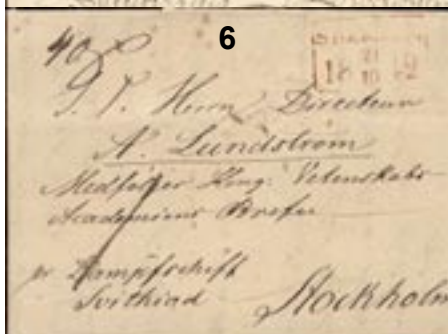 6
40
18 21 10
S. T. Herrn Directeur
A. Lundström
Medföljer Kong: Vetenskabs
Academiens Brefu
pr Dampfschift
Svithiod
Stockholm